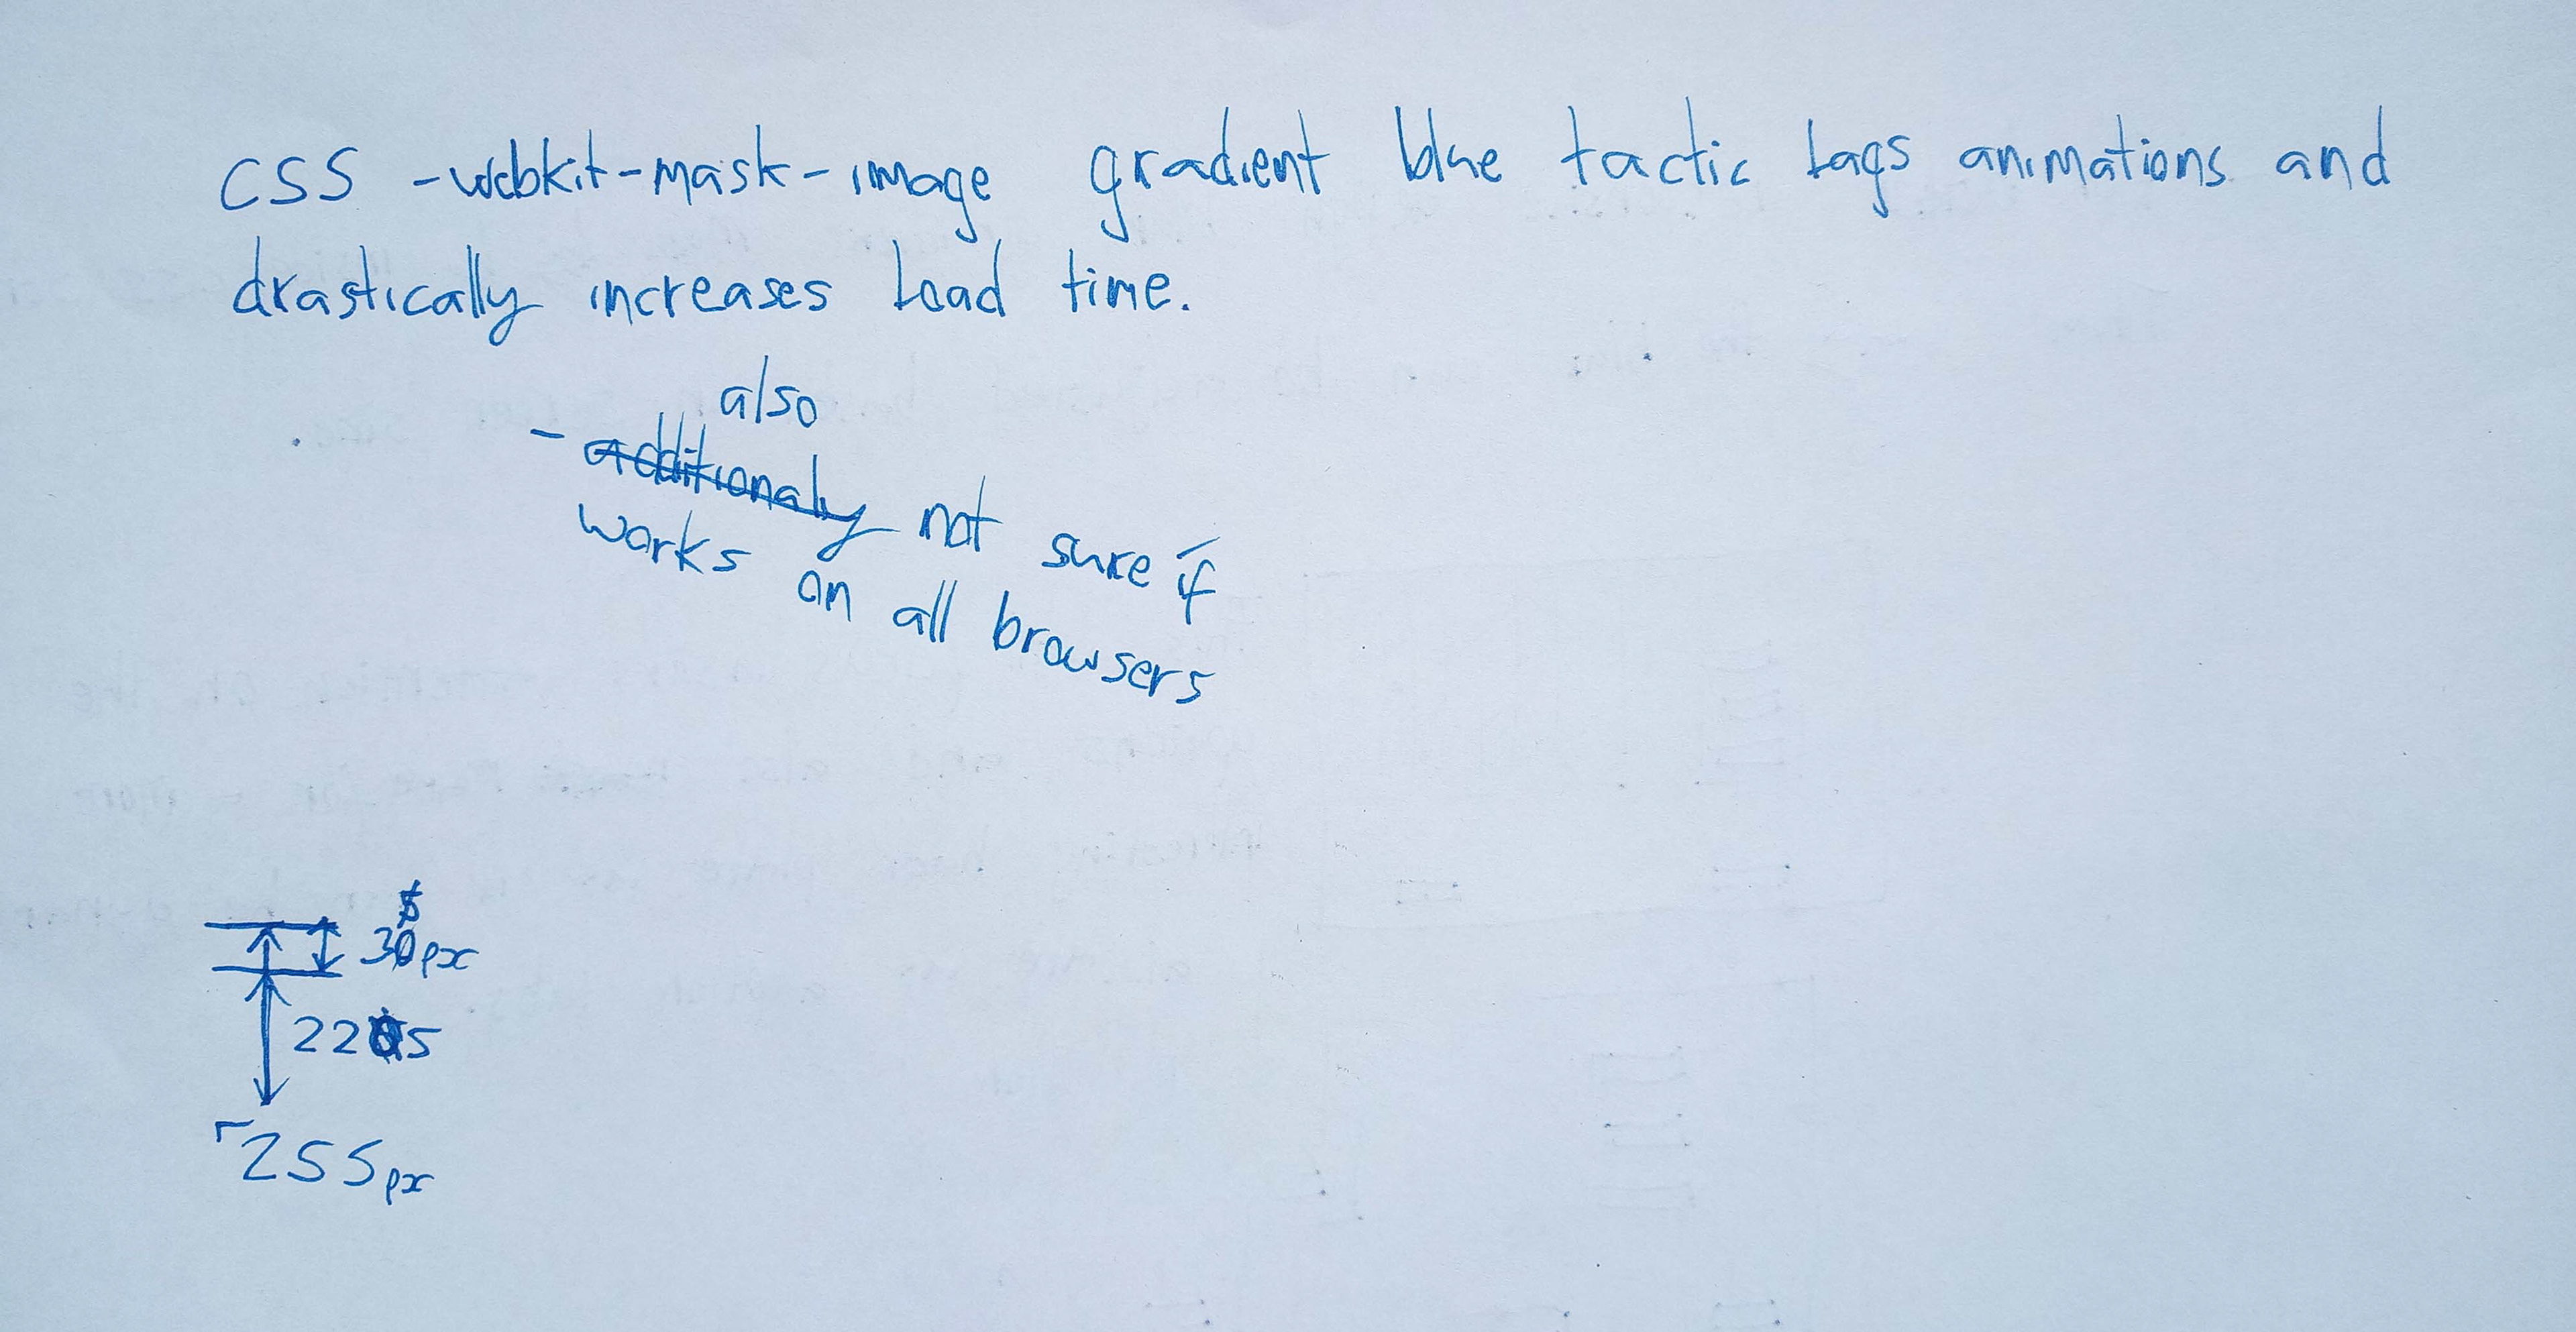 CSS -webkit-mask-image gradient blue tactic lags animations and
drastically increases load time.
also
- additionaly not sure if
works on all browsers
30px
225
255px